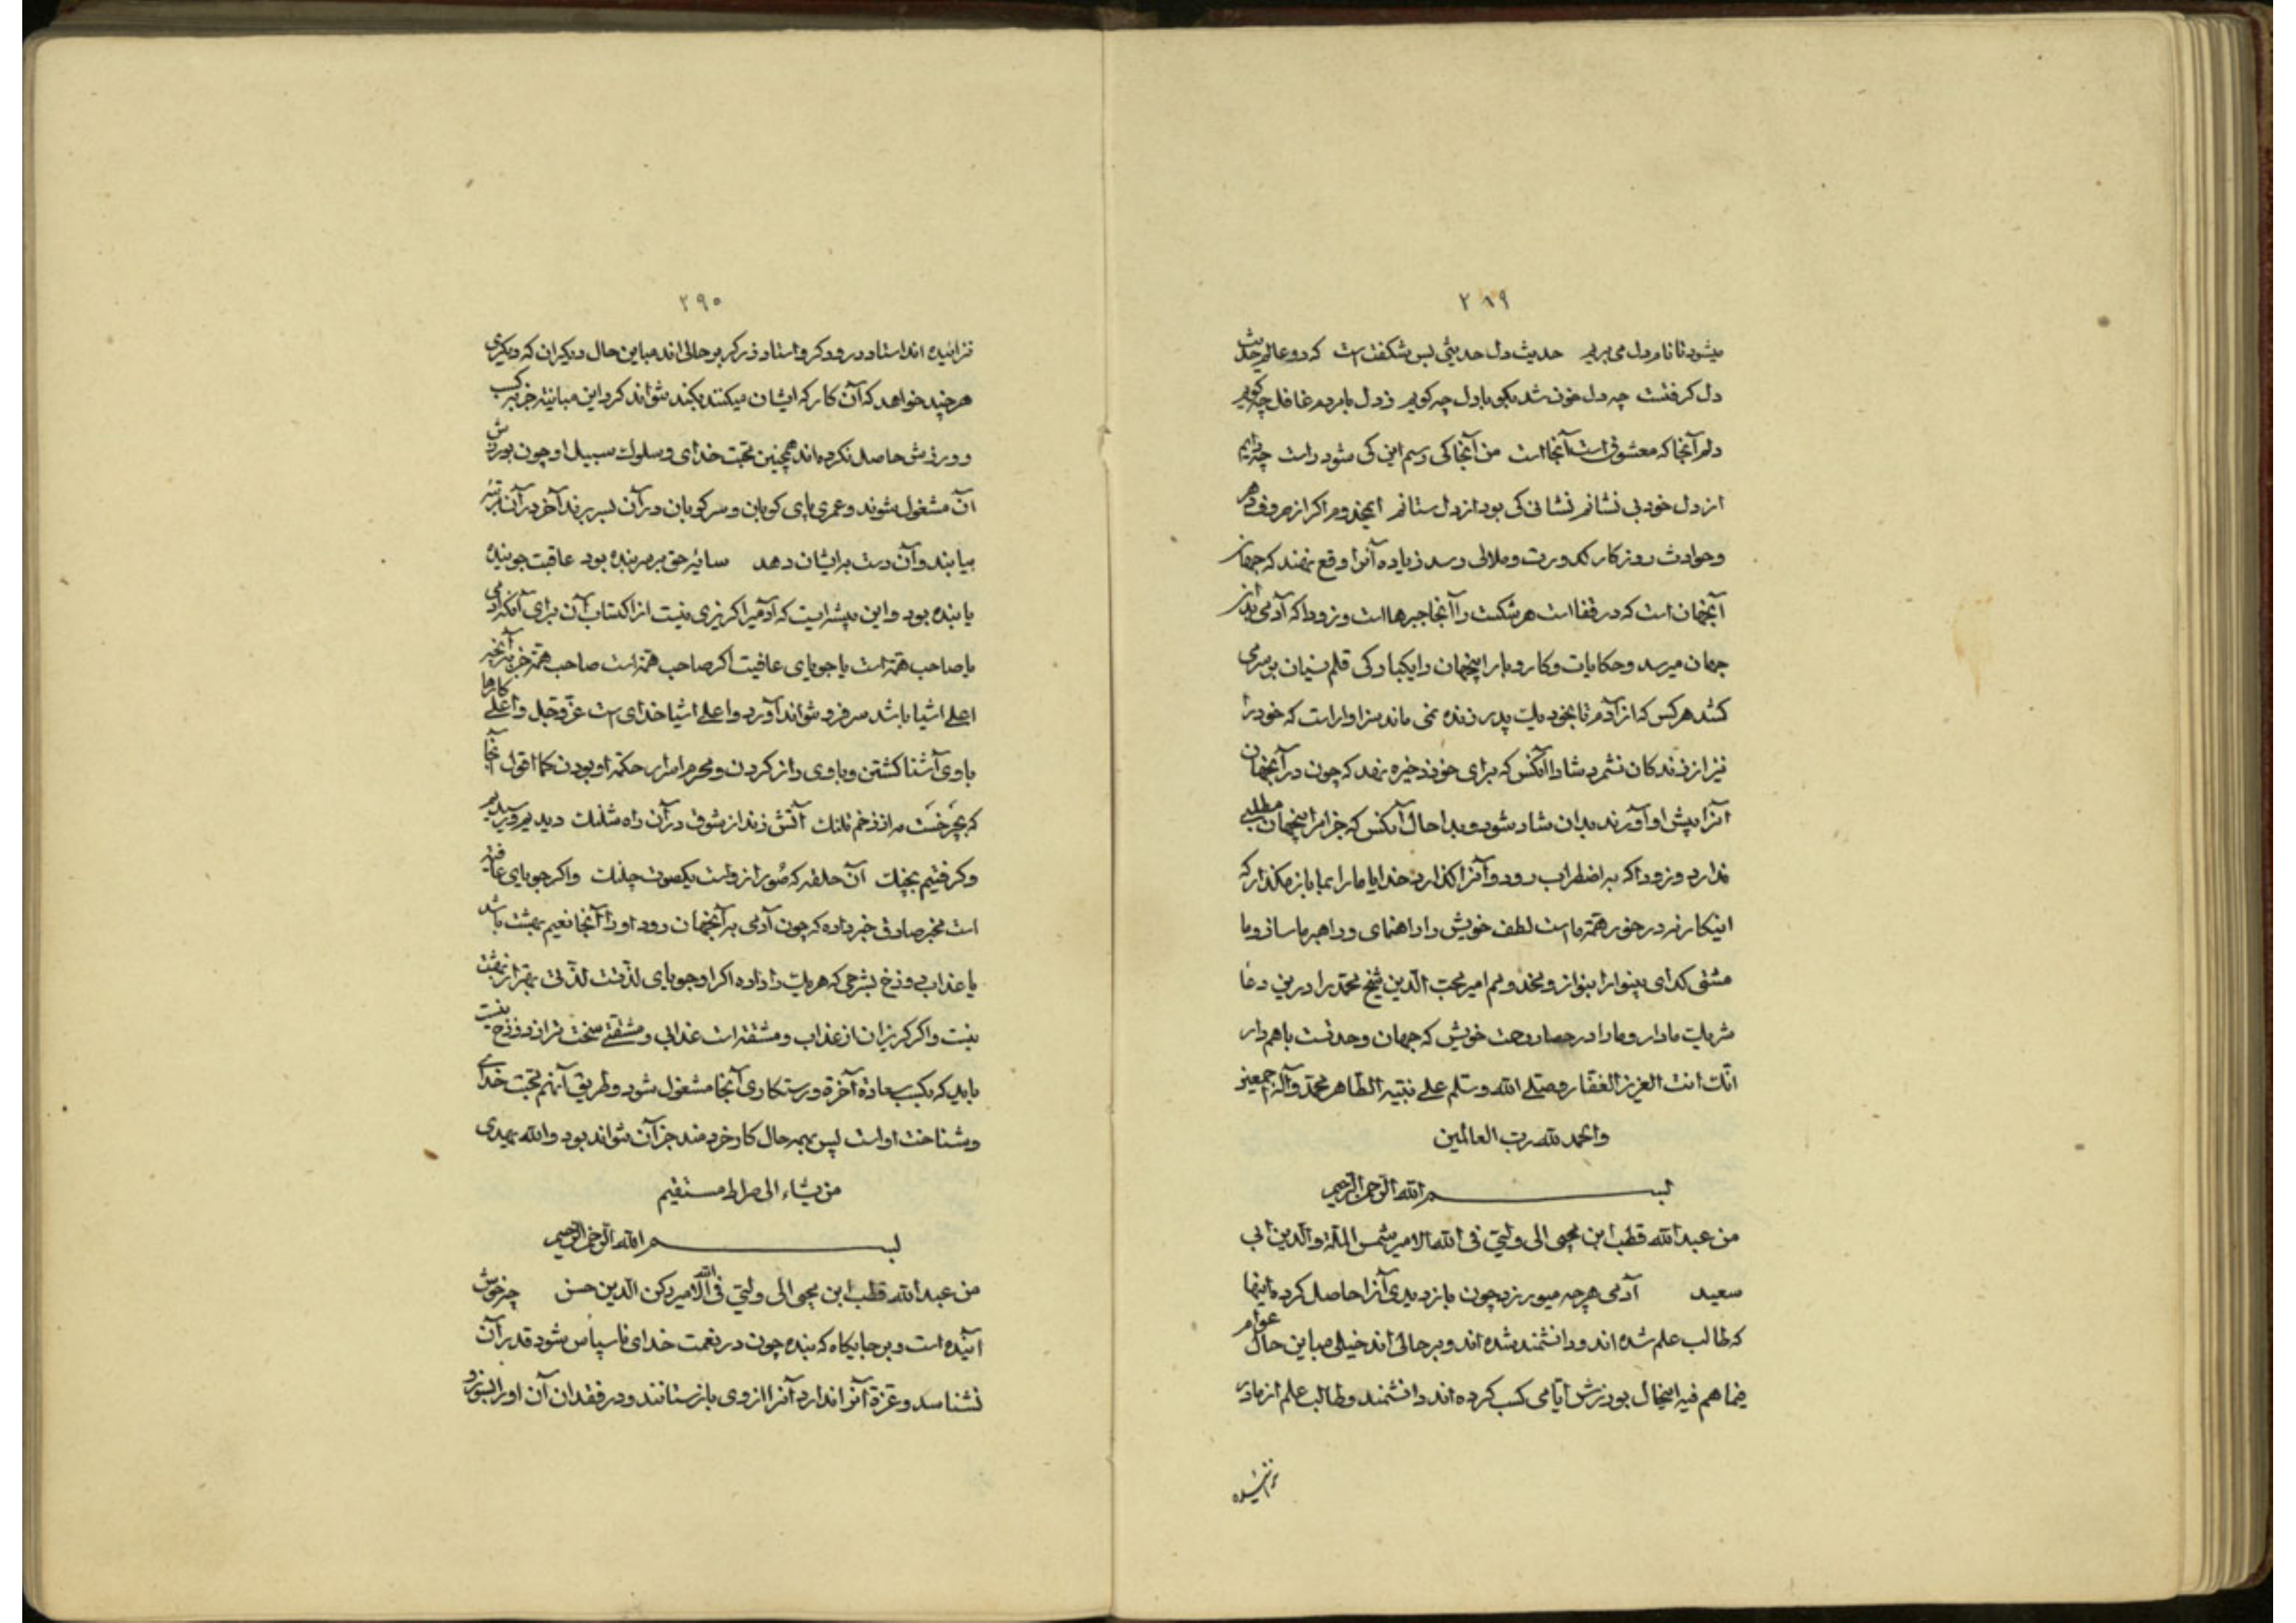 ۲۸۹
میشود تا نام دل می بریم حدیث دل حدیثی بس شکفت است که دو عالم حدیث
دل کرفتست چه دل خون شد بکو با دل چه کویم ز دل با مردم غافل چه کویم
دلم آنجا که معشوق است آنجا است من آنجا کی رسم این کی شود راست چه دانم
از دل خود بی نشانم نشانی کی بود از دل ستانم ایمخدوم اکر از صروف دهر
و حوادث روزکار کدورت و ملالی رسد زیاده آنرا وقع ننهند که جهان
آنجهان است که در قفا است هر شکست را آنجا جبرها است و زودا که آدمی بدان
جهان میرسد و حکایات و کار و بار اینجهان را یکبارکی قلم نسیان بر سر می
کشد هر کس که از آدم تا بخود یک پدر زنده نمی ماند سزاوار است که خود را
نیز از زندکان نشمرد شاد آنکس که برای خود ذخیره نهد که چون در آنجهان
آنرا پیش او آورند بدان شاد شود و بدا حال آنکس که جز از اینجهان مطلبی
ندارد و زودا که به اضطراب رود و آنرا کذارد خدایا ما را بما باز مکذار که
اینکار نه در خور همّة ما است لطف خویش را راهنمای و راهبر ما ساز و ما
مشتی کدای بینوا را بنواز و مخدومم امیر محب الدین شیخ محمد برادر من در دعا
شریک ما دار و ما را در حصار وحدت خویش که جهان وحدتست با هم دار
انّک انت العزیز الغفار و صلی الله و سلم علی نبیّه الطاهر محمد و آله اجمعین
والحمد لله رب العالمین
بسم الله الرحمن الرحیم
من عبد الله قطب ابن محیی الی ولیّی فی الله الامیر شمس الملة والدین ابی
سعید آدمی هر چه میورزد چون بازدیدی آنرا حاصل کرده اینها
که طالب علم شده اند و دانشمند شده اند و بر حالی اند خیلی مباین حال عوام
فیما هم فیه اینحال بورزش ایّامی کسب کرده اند دانشمند و طالب علم از مادر
نزائیده
۲۹۰
نزائیده اند استاد درودکر و استاد زرکر بر حالی اند مباین حال دیکران که دیکری
هر چند خواهد که آن کار که ایشان میکنند بکند نتواند کرد این مباینة جز به کسب
و ورزش حاصل نکرده اند همچنین محبت خدای و سلوک سبیل او چون بورزش
آن مشغول شوند و عمری پای کوبان و سر کوبان در آن بسر برند آخر در آن مرتبه
بیابند و آن دست بر ایشان دهد سایه حق بر سر بنده بود عاقبت جوینده
یابنده بود و این پیشه ایست که آدمیرا کریزی نیست از اکتساب آن برای آنکه آدمی
یا صاحب همّة است یا جویای عافیت اکر صاحب همّة است صاحب همّة جز به آنچه
اعلی اشیا باشد سر فرو نتواند آورد و اعلی اشیا خدای است عزّ و جل و اعلی کارها
با وی آشنا کشتن و با وی راز کردن و محرم اسرار حکمة او بودن کما اقول آنجا
که بچرخست مه از زخم تلنک آتش زند از شوق در آن راه شلنک دیدیم و رسیدیم
و کرفتیم بچنک آن حلقه که صُور ازواست یکصوت جلنک و اکر جویای عافیة
است مخبر صادق خبر داده که چون آدمی به آنجهان رود او را آنجا نعیم بهشت باشد
یا عذاب دوزخ بشرحی که هر یک را داده اکر او جویای لذّتست لذّتی بهتر از بهشت
نیست و اکر کریزان از عذاب و مشقة است عذابی و مشقتی سخت تر از دوزخ نیست
باید که بکسب سعادة آخرة و رستکاری آنجا مشغول شود و طریق آنهم محبت خدای
و شناخت او است پس بهمه حال کار خردمند جز آن نتواند بود والله یهدی
من یشاء الی صراط مستقیم
بسم الله الرحمن الرحیم
من عبد الله قطب ابن محیی الی ولیّی فی الله الامیر رکن الدین حسن چیز خوش
آینده است و بر جایکاه که بنده چون در نعمت خدای ناسپاس شود قدر آن
نشناسد و عزة آنرا ندارد آنرا از وی بازستانند و در فقدان آن او را بسوزد